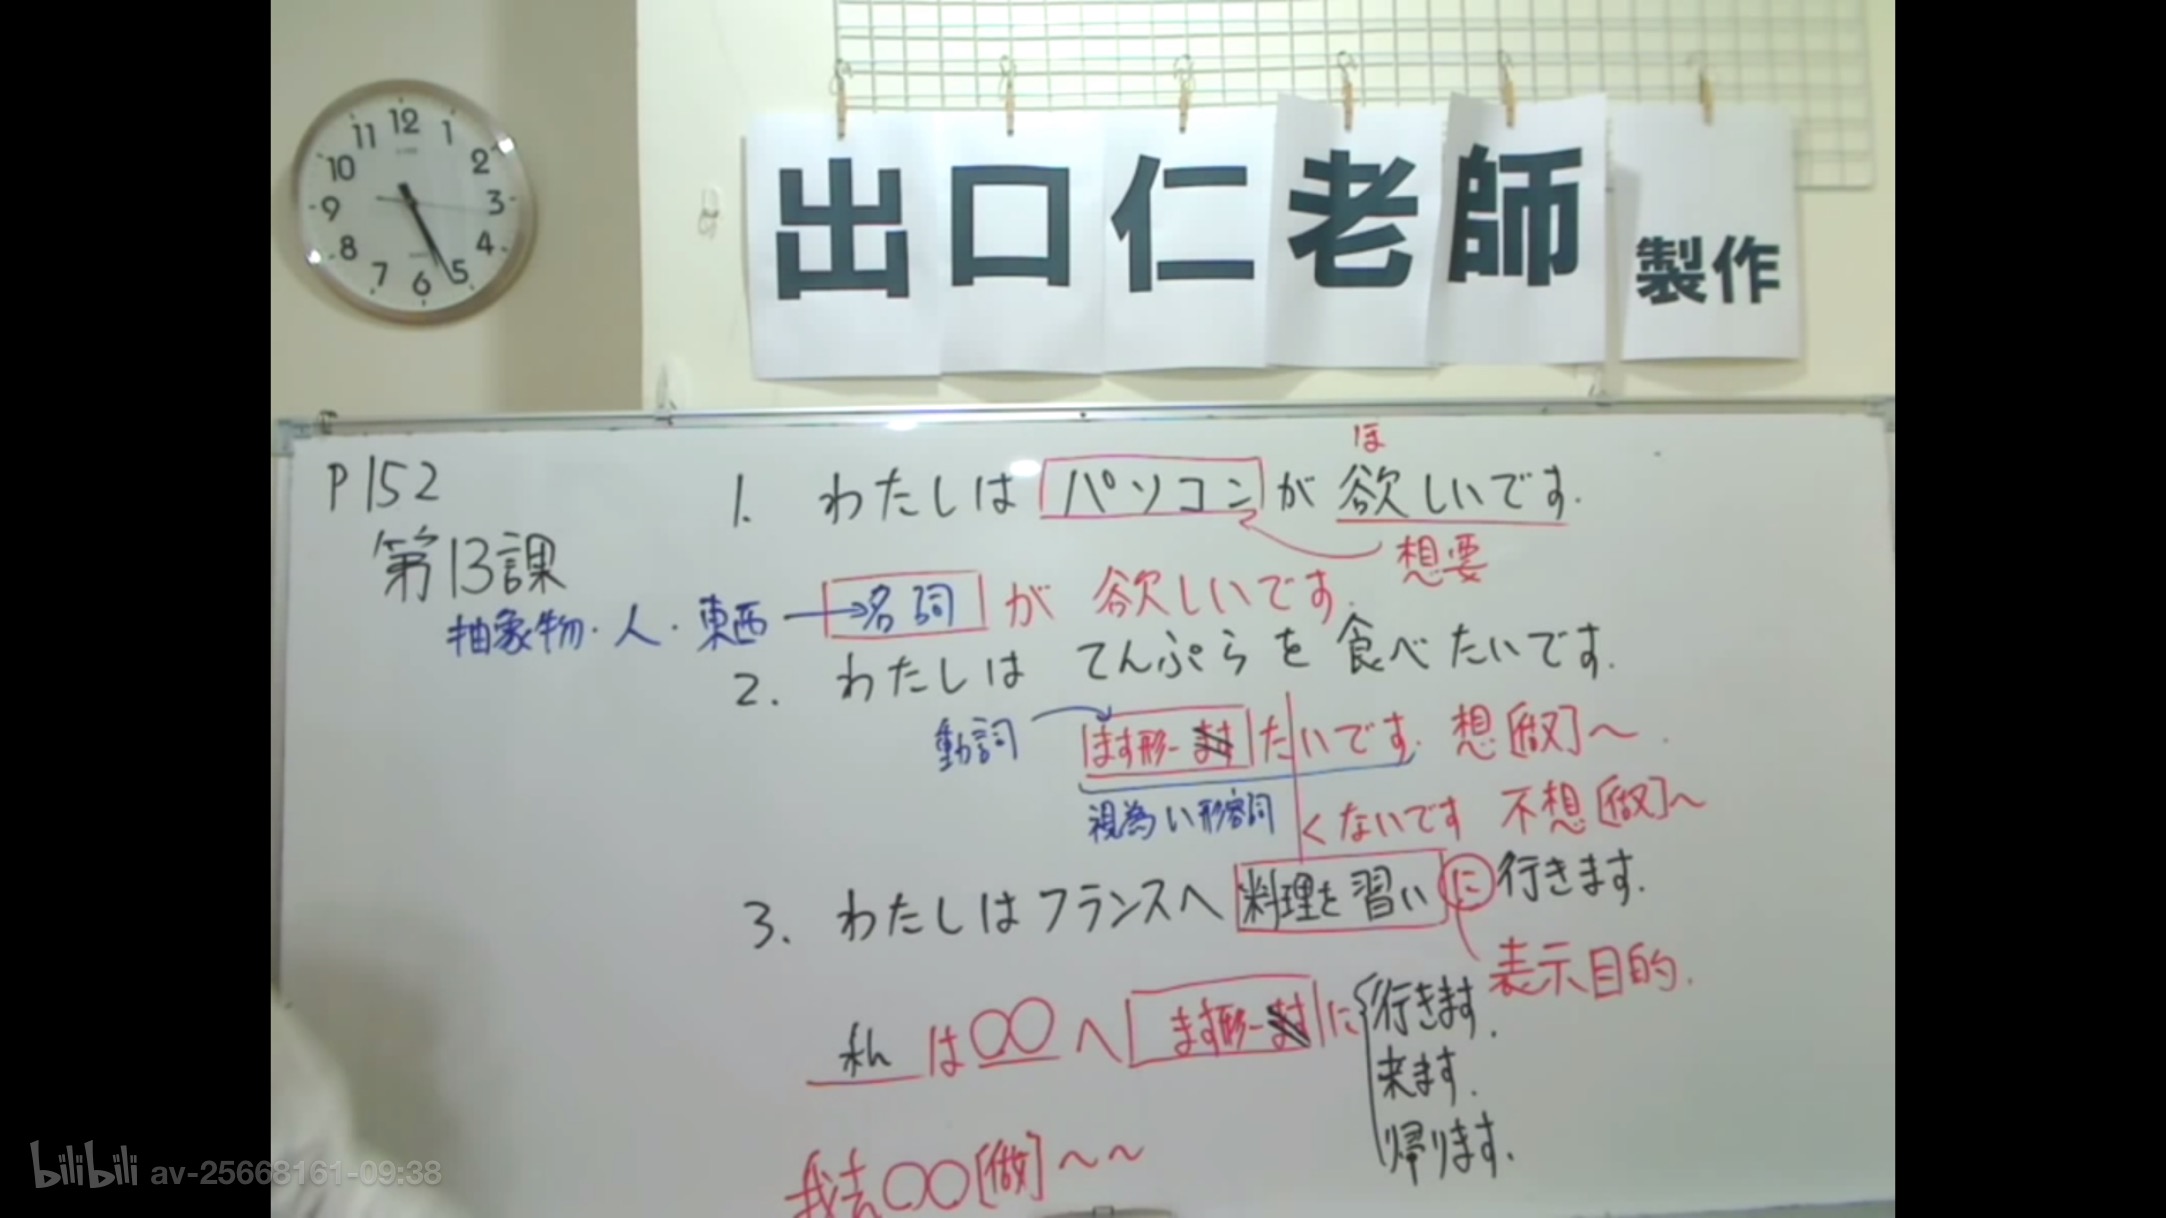 12 1 2 3 4 5 6 7 8 9 10 11
出口仁老師 製作
P152
第13課
ほ
1. わたしは パソコン が 欲しいです.
想要
抽象物・人・東西 → 名詞 が 欲しいです.
2. わたしは てんぷらを 食べたいです.
動詞 ます形-ます たいです. 想[做]~.
視為い形容詞 くないです 不想[做]~
3. わたしはフランスへ 料理を習い に 行きます.
表示目的.
私 は ○○ へ ます形-ます に 行きます.
来ます.
帰ります.
我去○○[做]~~
bilibili av-25668161-09:38